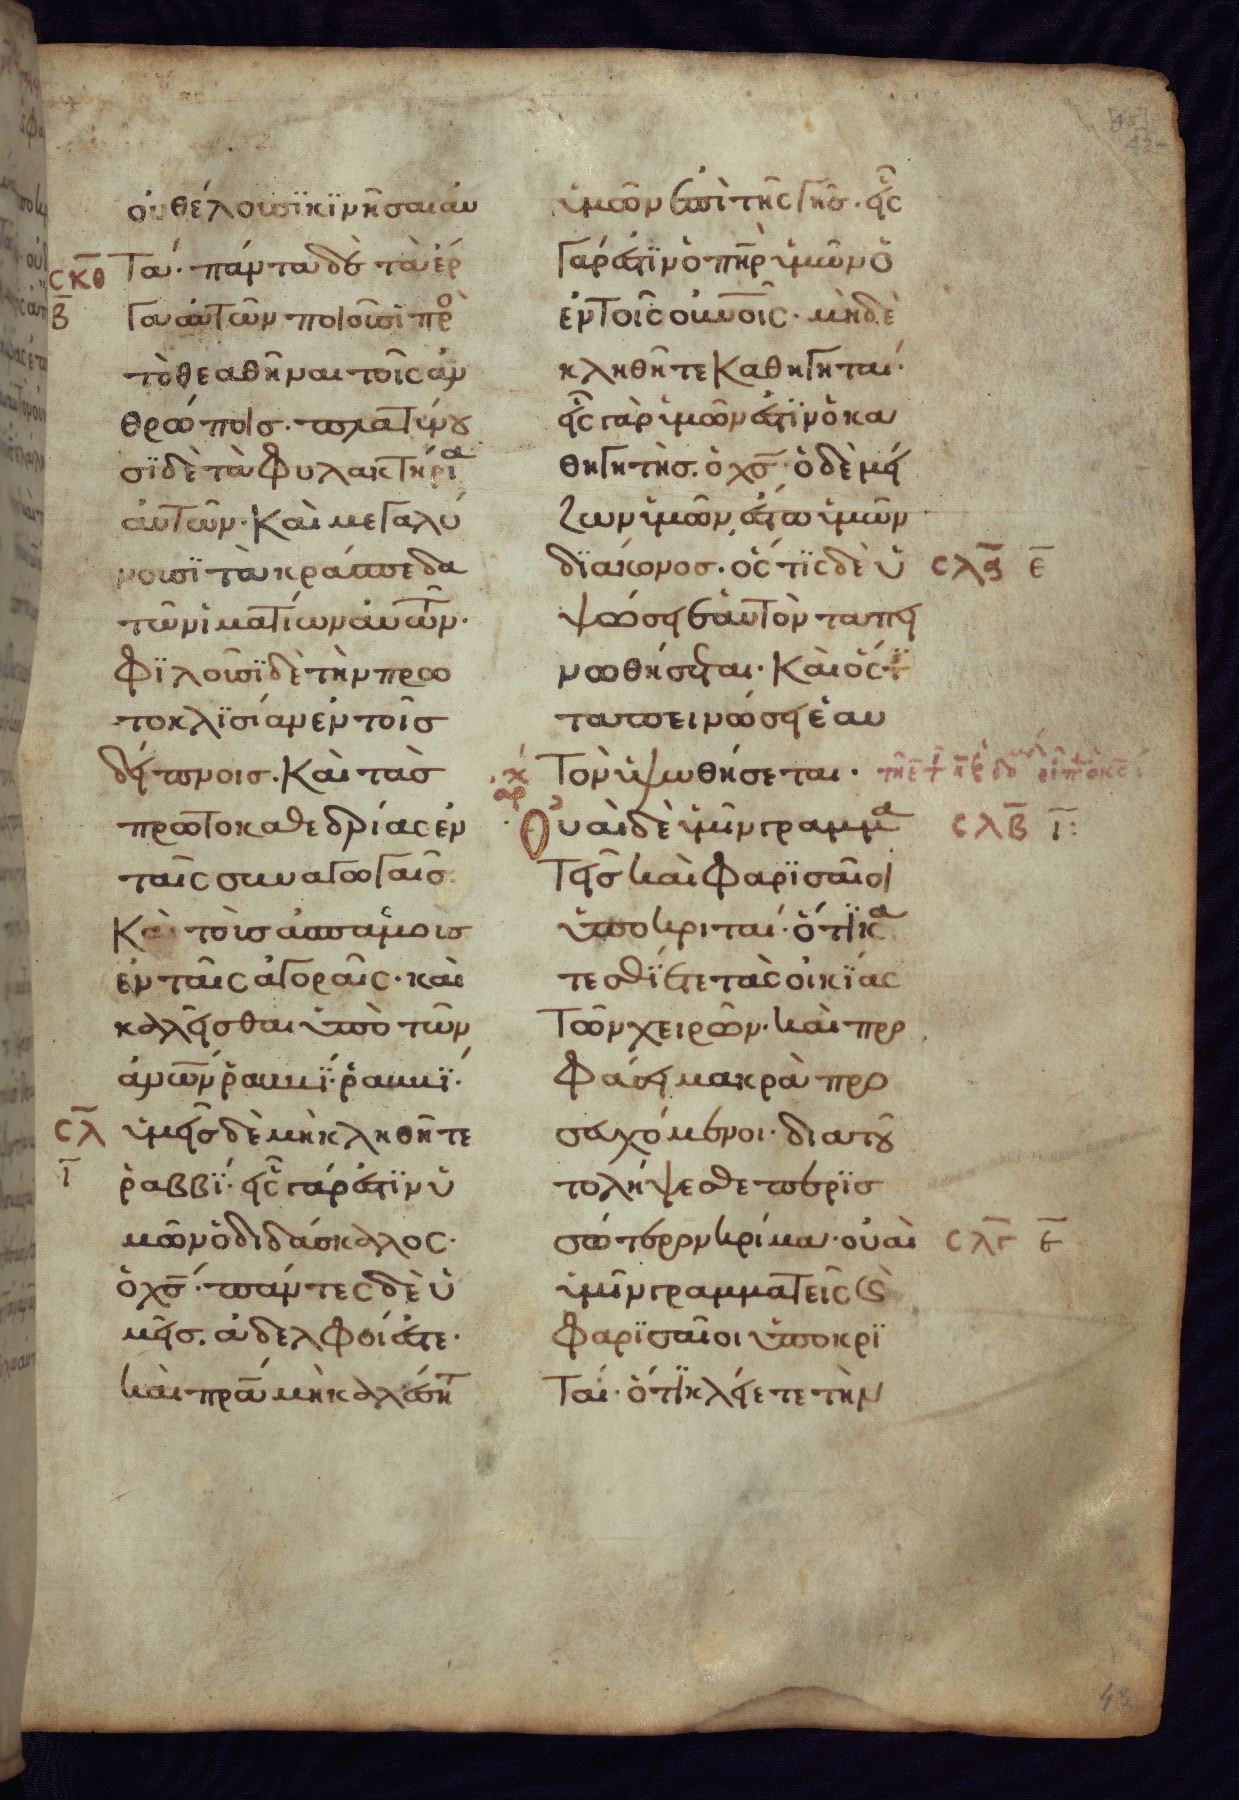 οὐ θέλουσϊ κϊνῆσαι αὐ
τά· πάντα δὲ τὰ ἔρ
γα αὐτῶν ποιοῦσι πρὸ
τὸ θεαθῆναι τοῖς ἀν
θρώποις· πλατύνου
σϊ δὲ τὰ φυλακτήρια
αὐτῶν· καὶ μεγαλύ
νουσϊ τὰ κράσπεδα
τῶν ἱματίων αὐτῶν·
φϊλοῦσϊ δὲ τὴν πρω
τοκλϊσίαν ἐν τοῖς
δείπνοις· καὶ τὰς
πρωτοκαθεδρίας ἐν
ταῖς συναγωγαῖς·
καὶ τοὺς ἀσπασμοὺς
ἐν ταῖς ἀγοραῖς· καὶ
καλεῖσθαι ὑπὸ τῶν
ἀνων ῥαββϊ· ῥαββϊ·
ὑμεῖς δὲ μὴ κληθῆτε
ῥαββϊ· εἷς γάρ ἐστϊν ὑ
μῶν ὁ διδάσκαλος·
ὁ χς· πάντες δὲ ὑ
μεῖς· ἀδελφοί ἐστε·
καὶ πρα μὴ καλέσητ
ὑμῶν ἐπὶ τῆς γῆς· εἷς
γάρ ἐστϊν ὁ πηρ ὑμῶν ὁ
ἐν τοῖς οὐνοις· μὴδὲ
κληθῆτε καθηγηταί·
εἷς γὰρ ὑμῶν ἐστϊν ὁ κα
θηγητὴς· ὁ χς· ὁ δὲ μεί
ζων ὑμῶν ἔστω ὑμῶν
δϊάκονος· ὅστϊς δὲ ὑ
ψώσει ἑαυτὸν ταπει
νωθήσεται· καὶ ὅστϊ
ταπεινώσει ἑαυ
τὸν ὑψωθήσεται·
Οὐαὶ δὲ ὑμῖν γραμμα
τεῖς καὶ φαρϊσαῖοι
ὑποκριταί· ὅτϊ κα
τεσθΐετε τὰς οἰκΐας
τῶν χειρῶν· καὶ προ
φάσει μακρὰ προ
σευχόμενοι· διατοῦ
το λήψεσθε περϊσ
σότερον κρίμα· οὐαὶ
ὑμῖν γραμματεῖς καὶ
φαρϊσαῖοι ὑποκρϊ
ταί· ὅτϊ κλείετε τὴν
σκθ
β
σλ
ι
σλα ε
κ
αρ
σλβ ι
σλγ ε
43